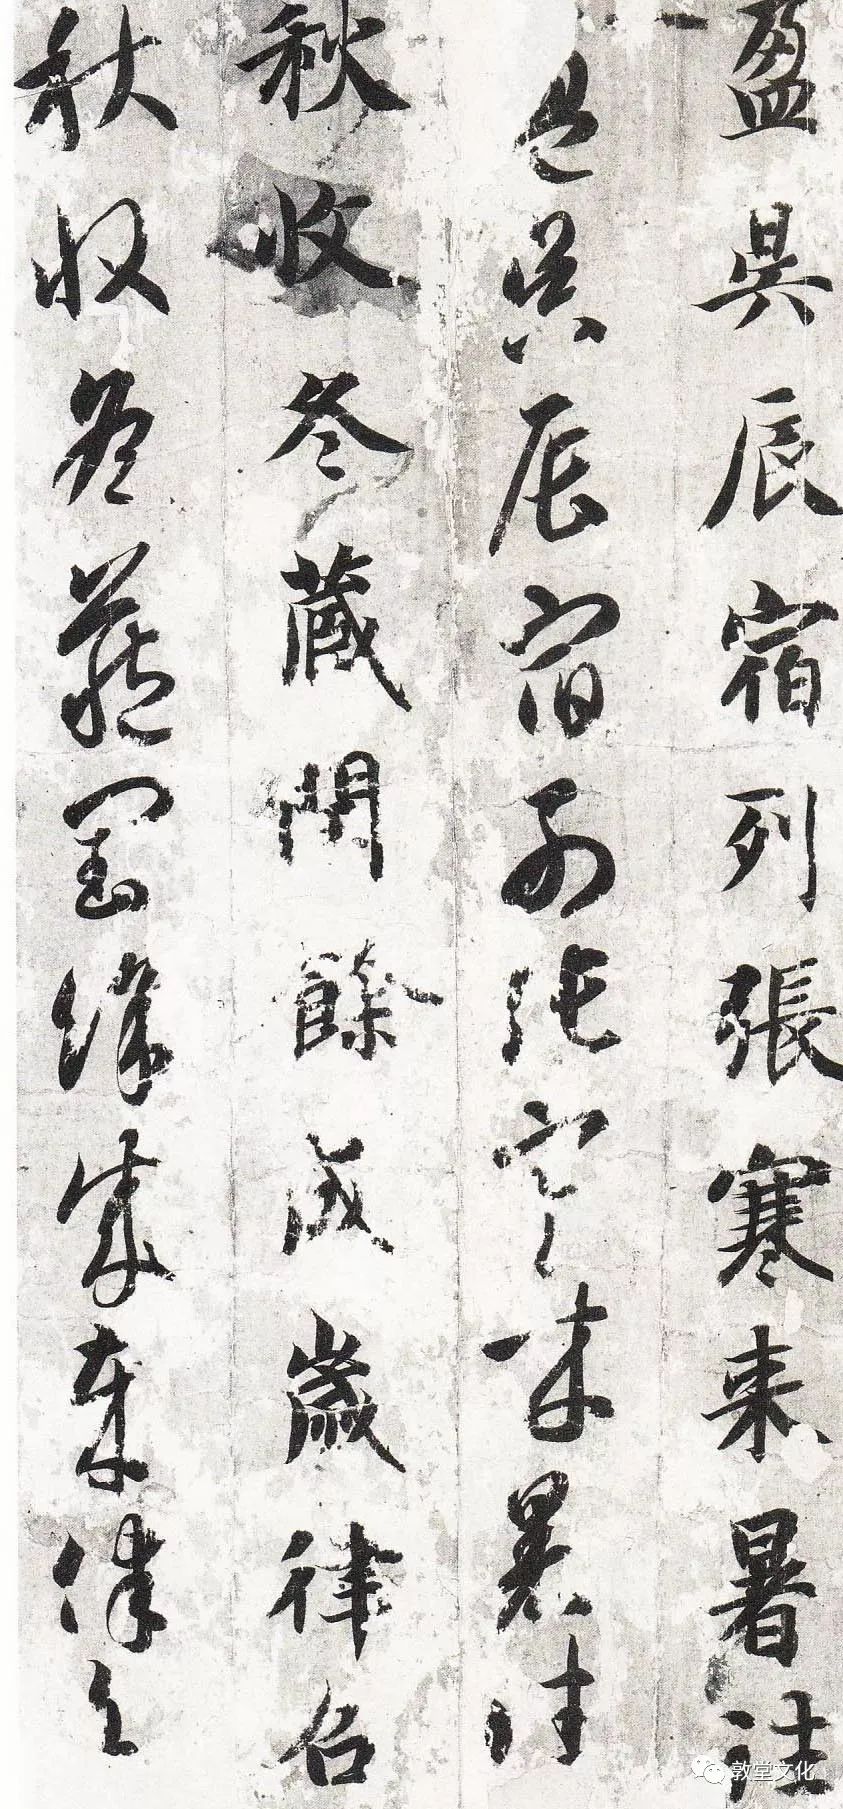 盈昃辰宿列張寒来暑往
盈昃辰宿列張寒来暑往
秋收冬藏閏餘成歲律召
秋收冬藏閏餘成歲律召
敦堂文化